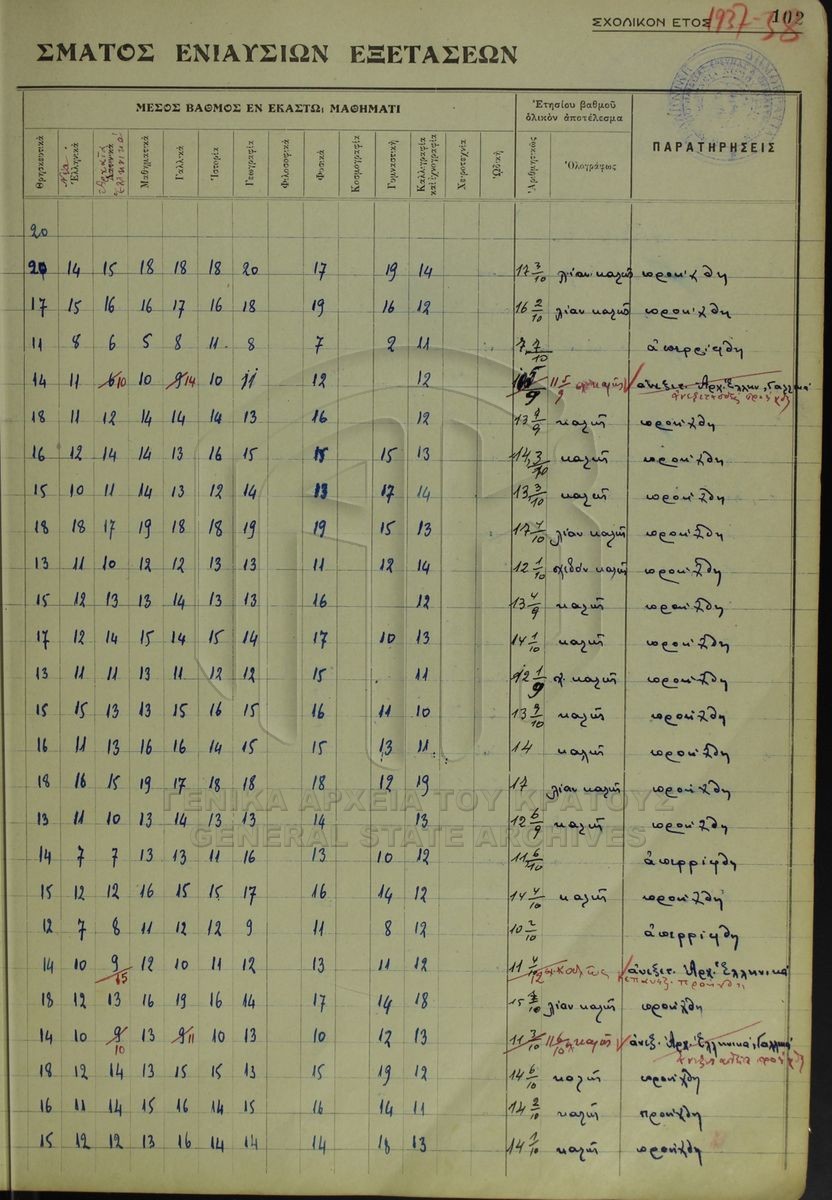 ΣΧΟΛΙΚΟΝ ΕΤΟΣ 1937-38 102
ΣΜΑΤΟΣ ΕΝΙΑΥΣΙΩΝ ΕΞΕΤΑΣΕΩΝ
ΜΕΣΟΣ ΒΑΘΜΟΣ ΕΝ ΕΚΑΣΤΩι ΜΑΘΗΜΑΤΙ
Ἐτησίου βαθμοῦ ὁλικὸν ἀποτέλεσμα
ΠΑΡΑΤΗΡΗΣΕΙΣ
Θρησκευτικά Νέα Ἑλληνικά Ἀρχαῖα Λατινικά Ἑλληνικά Μαθηματικά Γαλλικά Ἱστορία Γεωγραφία Φιλοσοφικά Φυσικά Κοσμογραφία Γυμναστική Καλλιγραφία καὶ ἰχνογραφία Χειροτεχνία Ὠδική Ἀριθμητικῶς Ὁλογράφως
20
20 14 15 18 18 18 20 17 19 14 17 3/10 λίαν καλῶς προήχθη
17 15 16 16 17 16 18 19 16 12 16 2/10 λίαν καλῶς προήχθη
11 8 6 5 8 11 8 7 2 11 7 7/10 ἀπερρίφθη
14 11 6 10 10 9 14 10 11 12 12 11 5/9 ἀνεξετ. Ἀρχ. Ἑλλην, Γαλλικά
18 11 12 14 14 14 13 16 12 13 καλῶς προήχθη
16 12 14 14 13 16 15 15 15 13 14 3/10 καλῶς προήχθη
15 10 11 14 13 12 14 13 17 14 13 3/10 καλῶς προήχθη
18 18 17 19 18 18 19 19 15 13 17 4/10 λίαν καλῶς προήχθη
13 11 10 12 12 13 13 11 12 14 12 1/10 σχεδὸν καλῶς προήχθη
15 12 13 13 14 13 13 16 12 13 4/9 καλῶς προήχθη
17 12 14 15 14 15 14 17 10 13 14 1/10 καλῶς προήχθη
13 11 11 13 11 12 12 15 11 12 1/9 σχ. καλῶς προήχθη
15 15 13 13 15 16 15 16 11 10 13 9/10 καλῶς προήχθη
16 11 13 16 16 14 15 15 13 11 14 καλῶς προήχθη
18 16 15 19 17 18 18 18 12 19 17 λίαν καλῶς προήχθη
ΓΕΝΙΚΑ ΑΡΧΕΙΑ ΤΟΥ ΚΡΑΤΟΥΣ
13 11 10 13 14 13 13 14 13 12 6/9 καλῶς προήχθη
GENERAL STATE ARCHIVES
14 7 7 13 13 11 16 13 10 12 11 6/10 ἀπερρίφθη
15 12 12 16 15 15 17 16 14 12 14 4/10 καλῶς προήχθη
12 7 8 11 12 12 9 11 8 12 10 2/10 ἀπερρίφθη
14 10 9 12 10 11 12 13 11 12 11 4/10 ἀνεξετ. Ἀρχ. Ἑλληνικά
15 12
18 12 13 16 19 16 14 17 14 18 15 λίαν καλῶς προήχθη
14 10 9 13 9 11 10 13 10 12 13 11 3/10 11 6/10 ἀνεξ. Ἀρχ. Ἑλληνικά, Γαλλικά
10
18 12 14 13 15 15 13 15 19 12 14 6/10 καλῶς προήχθη
16 11 14 15 16 14 15 16 14 11 14 2/10 καλῶς προήχθη
15 12 12 13 16 14 14 14 18 13 14 1/10 καλῶς προήχθη